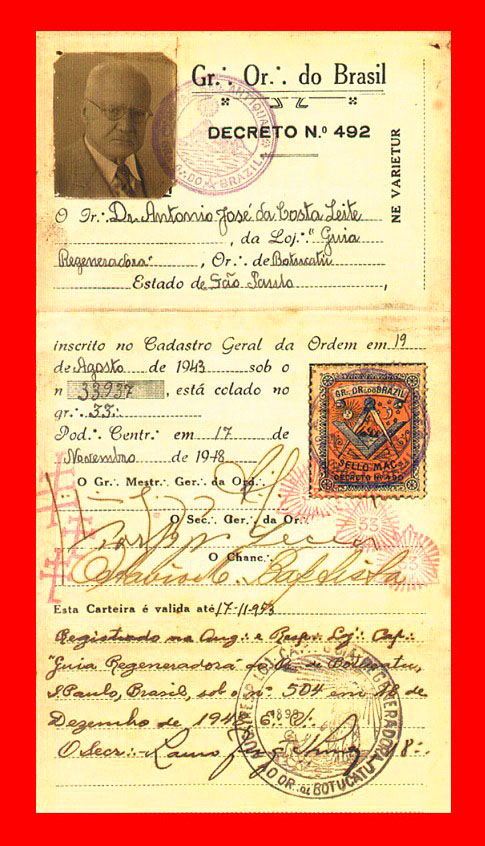 Gr∴ Or∴ do Brasil
DECRETO N.º 492
NE VARIETUR
O Ir∴ Dr. Antonio José da Costa Leite
, da Loj∴ "Guia
Regeneradora" , Or∴ de Botucatu
Estado de São Paulo ,
inscrito no Cadastro Geral da Ordem em 19
de Agosto de 1943 sob o
n 33.937 , está colado no
gr∴ 33∴
Pod∴ Centr∴ em 17 de
Novembro de 1948
GR∴ OR∴ DO BRAZIL
SELLO MAÇ∴
DECRETO Nº
O Gr∴ Mestr∴ Ger∴ da Ord∴
O Sec∴ Ger∴ da Or∴
33
33
O Chanc∴
Baptista
Esta Carteira é valida até 17-11-953
Registrado na Aug∴ e Resp∴ Loj∴ Cap∴
"Guia Regeneradora" ao Or∴ de Botucatu,
S. Paulo, Brasil, sob o nº 504 em 18 de
Dezembro de
O Secr∴ 18∴
REGENERADORA
AO OR. DE BOTUCATU